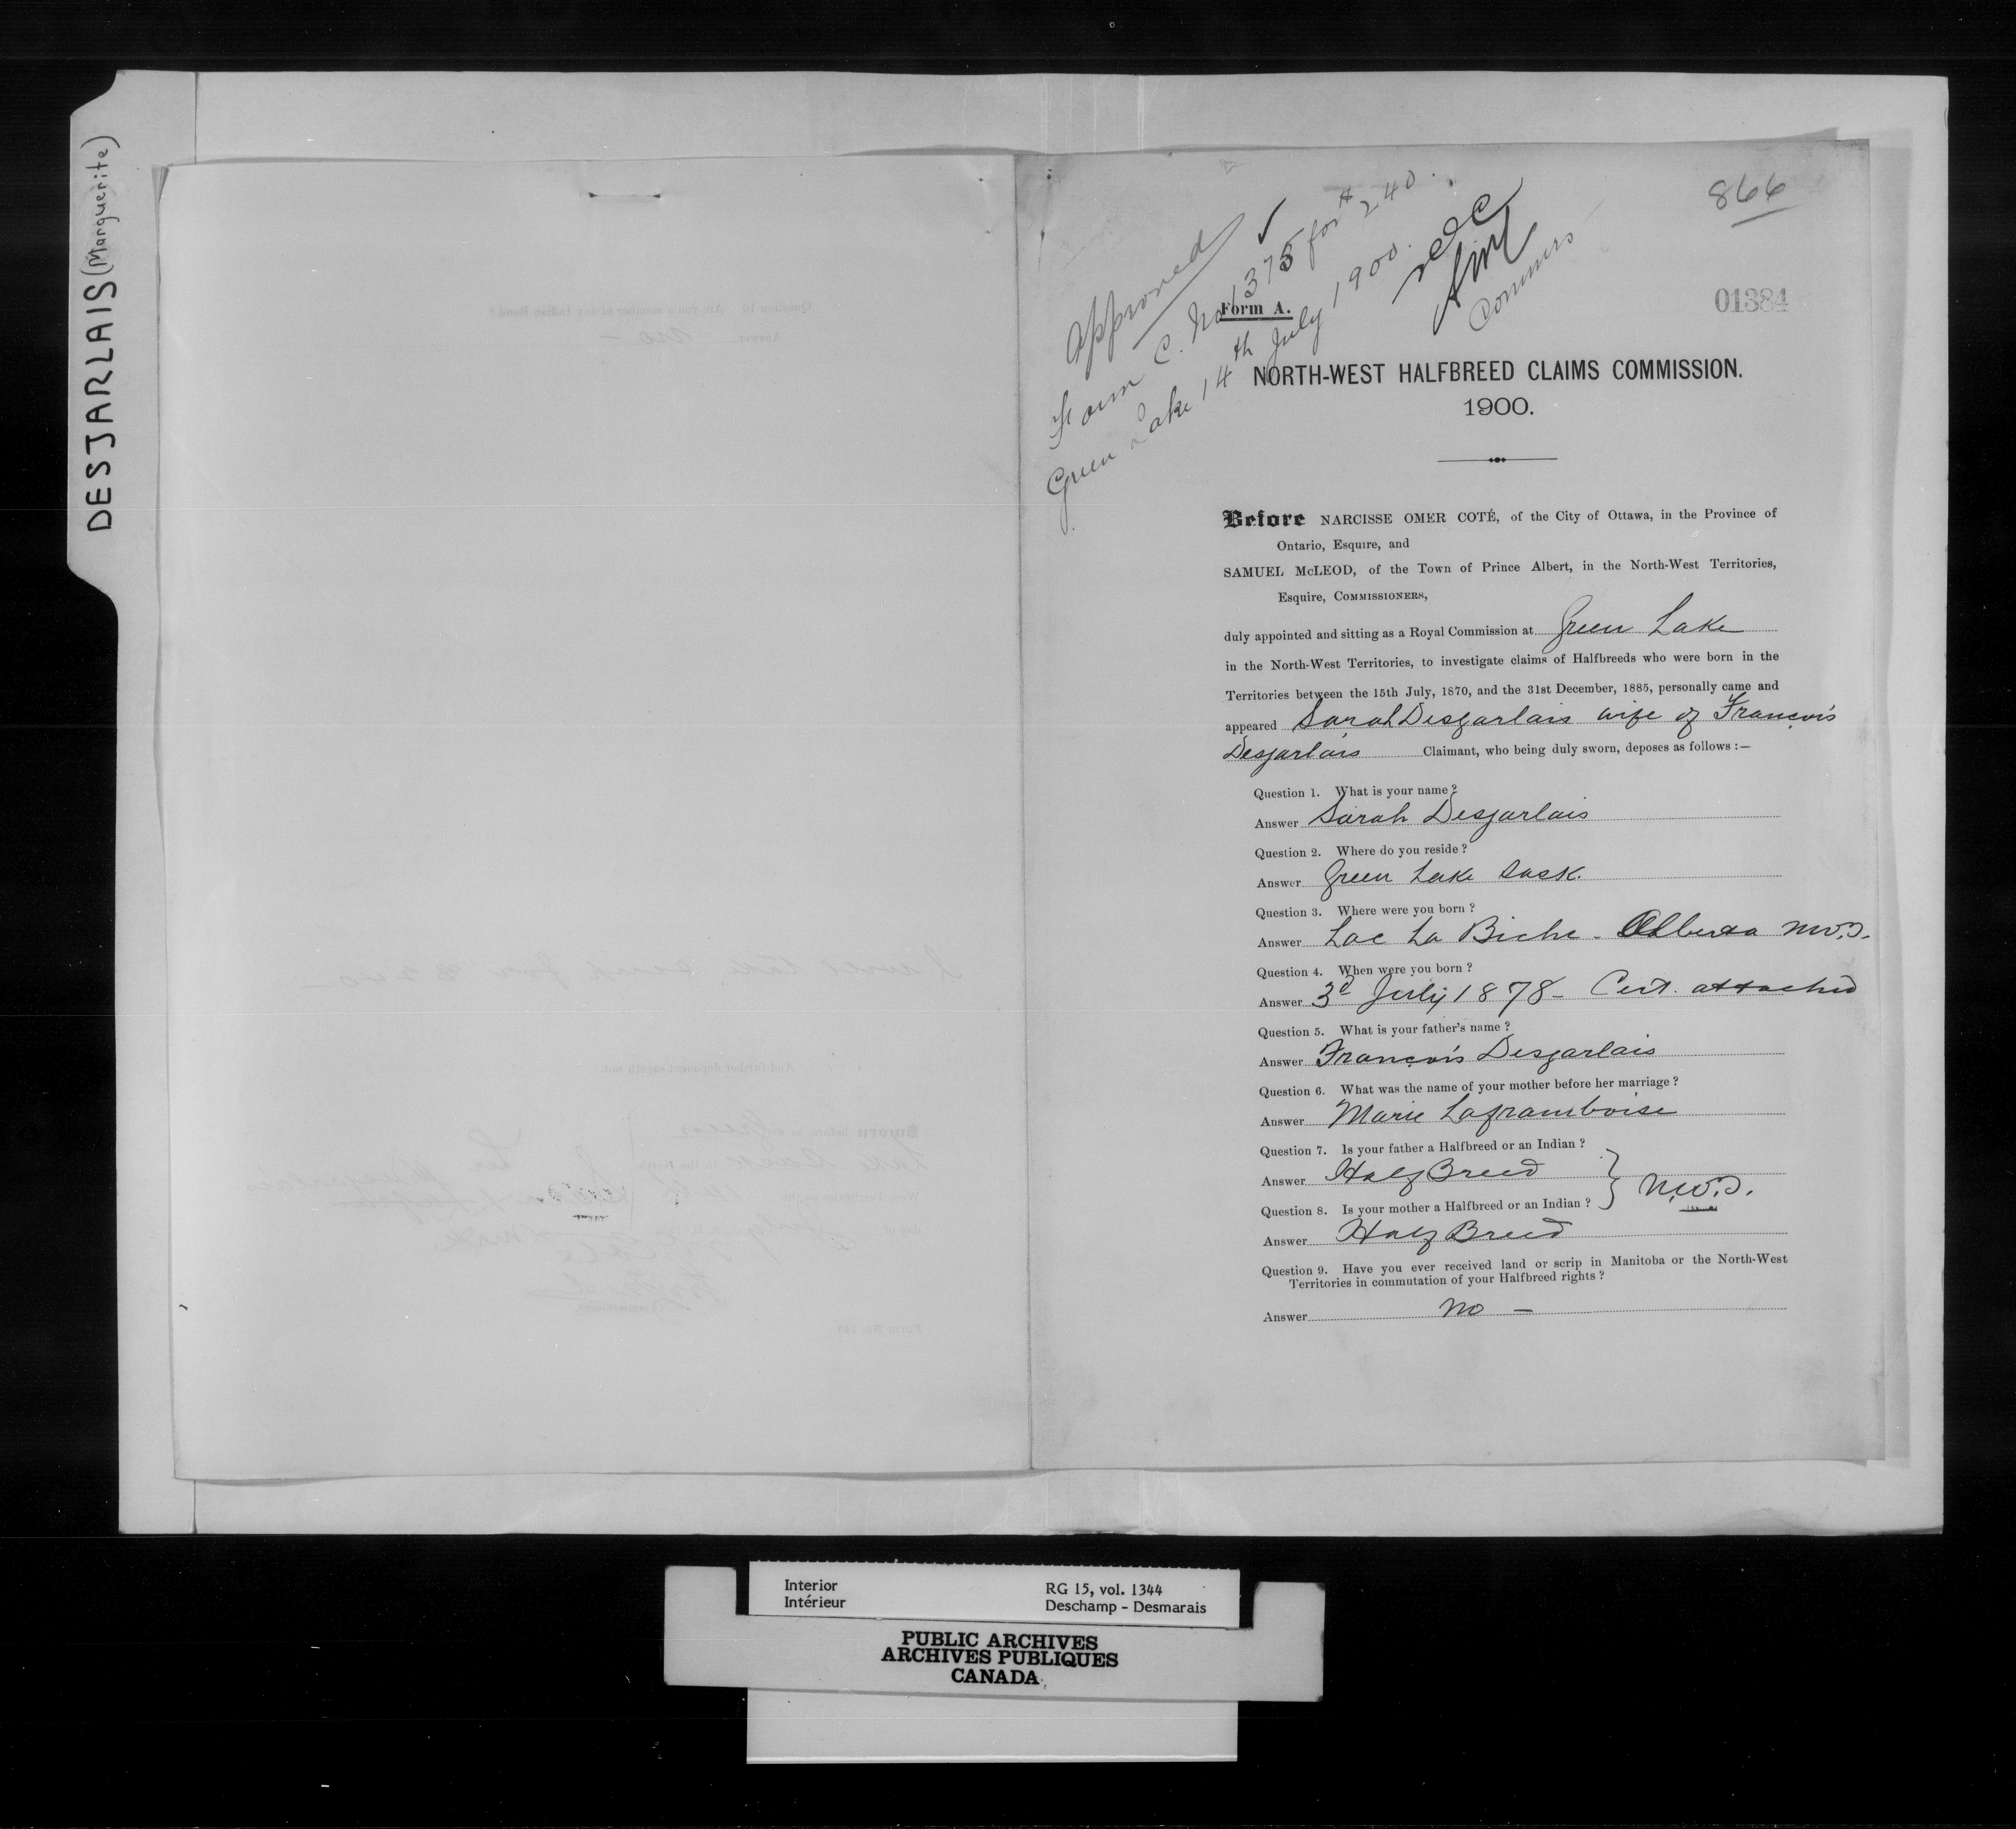 DESJARLAIS (Marguerite)
866
Approved ✓
Form C. No 1375 for $240.
Green Lake 14th July 1900.
Commrs
Form A.
01384
NORTH-WEST HALFBREED CLAIMS COMMISSION.
1900.
Before NARCISSE OMER COTÉ, of the City of Ottawa, in the Province of
Ontario, Esquire, and
SAMUEL McLEOD, of the Town of Prince Albert, in the North-West Territories,
Esquire, COMMISSIONERS,
duly appointed and sitting as a Royal Commission at Green Lake
in the North-West Territories, to investigate claims of Halfbreeds who were born in the
Territories between the 15th July, 1870, and the 31st December, 1885, personally came and
appeared Sarah Desjarlais wife of François
Desjarlais Claimant, who being duly sworn, deposes as follows :—
Question 1. What is your name?
Answer Sarah Desjarlais
Question 2. Where do you reside?
Answer Green Lake Sask.
Question 3. Where were you born?
Answer Lac La Biche - Alberta N.W.T.
Question 4. When were you born?
Answer 3d July 1878 - Cert. attached
Question 5. What is your father's name?
Answer François Desjarlais
Question 6. What was the name of your mother before her marriage?
Answer Marie Laframboise
Question 7. Is your father a Halfbreed or an Indian?
Answer Half Breed
N.W.T.
Question 8. Is your mother a Halfbreed or an Indian?
Answer Half Breed
Question 9. Have you ever received land or scrip in Manitoba or the North-West
Territories in commutation of your Halfbreed rights?
Answer No —
Interior
Intérieur
RG 15, vol. 1344
Deschamp - Desmarais
PUBLIC ARCHIVES
ARCHIVES PUBLIQUES
CANADA